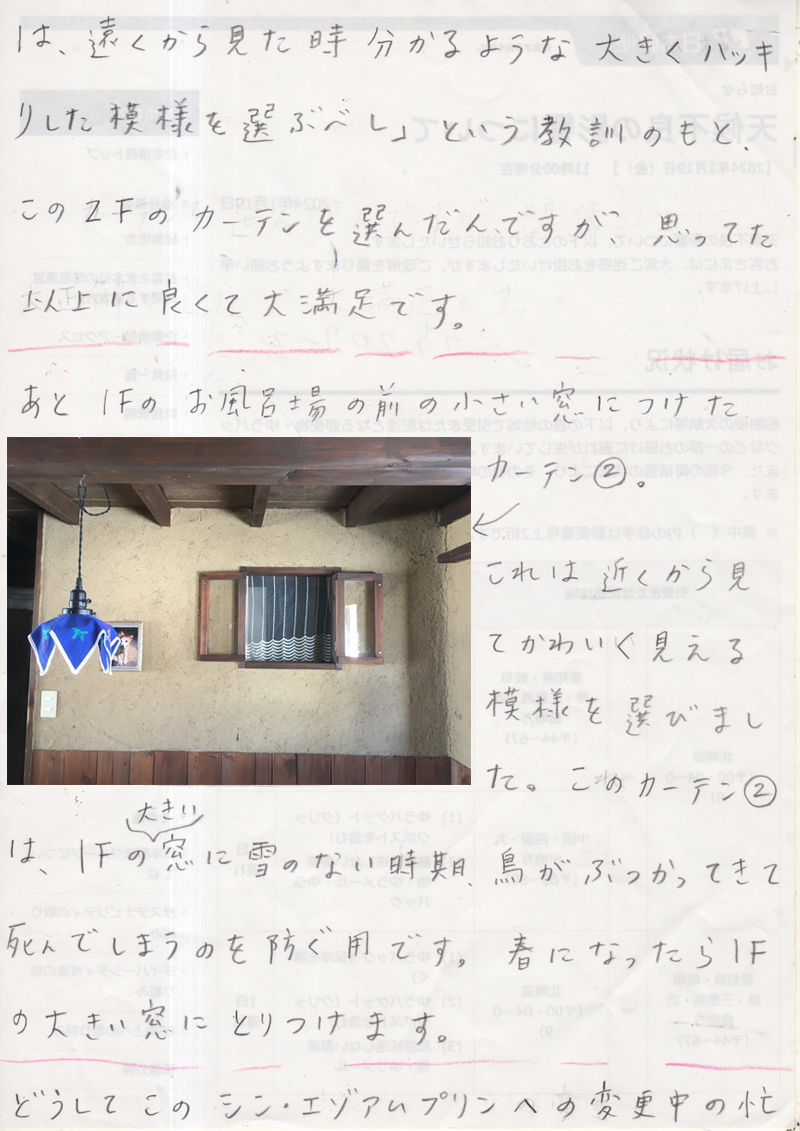 は、遠くから見た時 分かるような 大きくハッキ
りした模様を選ぶべし」という教訓のもと、
この2Fのカーテンを選んだんですが、思ってた
以上に良くて大満足です。
あと 1Fの お風呂場の前の小さい窓につけた
カーテン②。
これは近くから見
てかわいく見える
模様を選びまし
た。このカーテン②
大きい
は、1Fの窓に雪のない時期、鳥がぶつかってきて
死んでしまうのを防ぐ用です。 春になったら1F
の大きい窓にとりつけます。
どうしてこの シン・エゾアムプリンへの変更中の忙